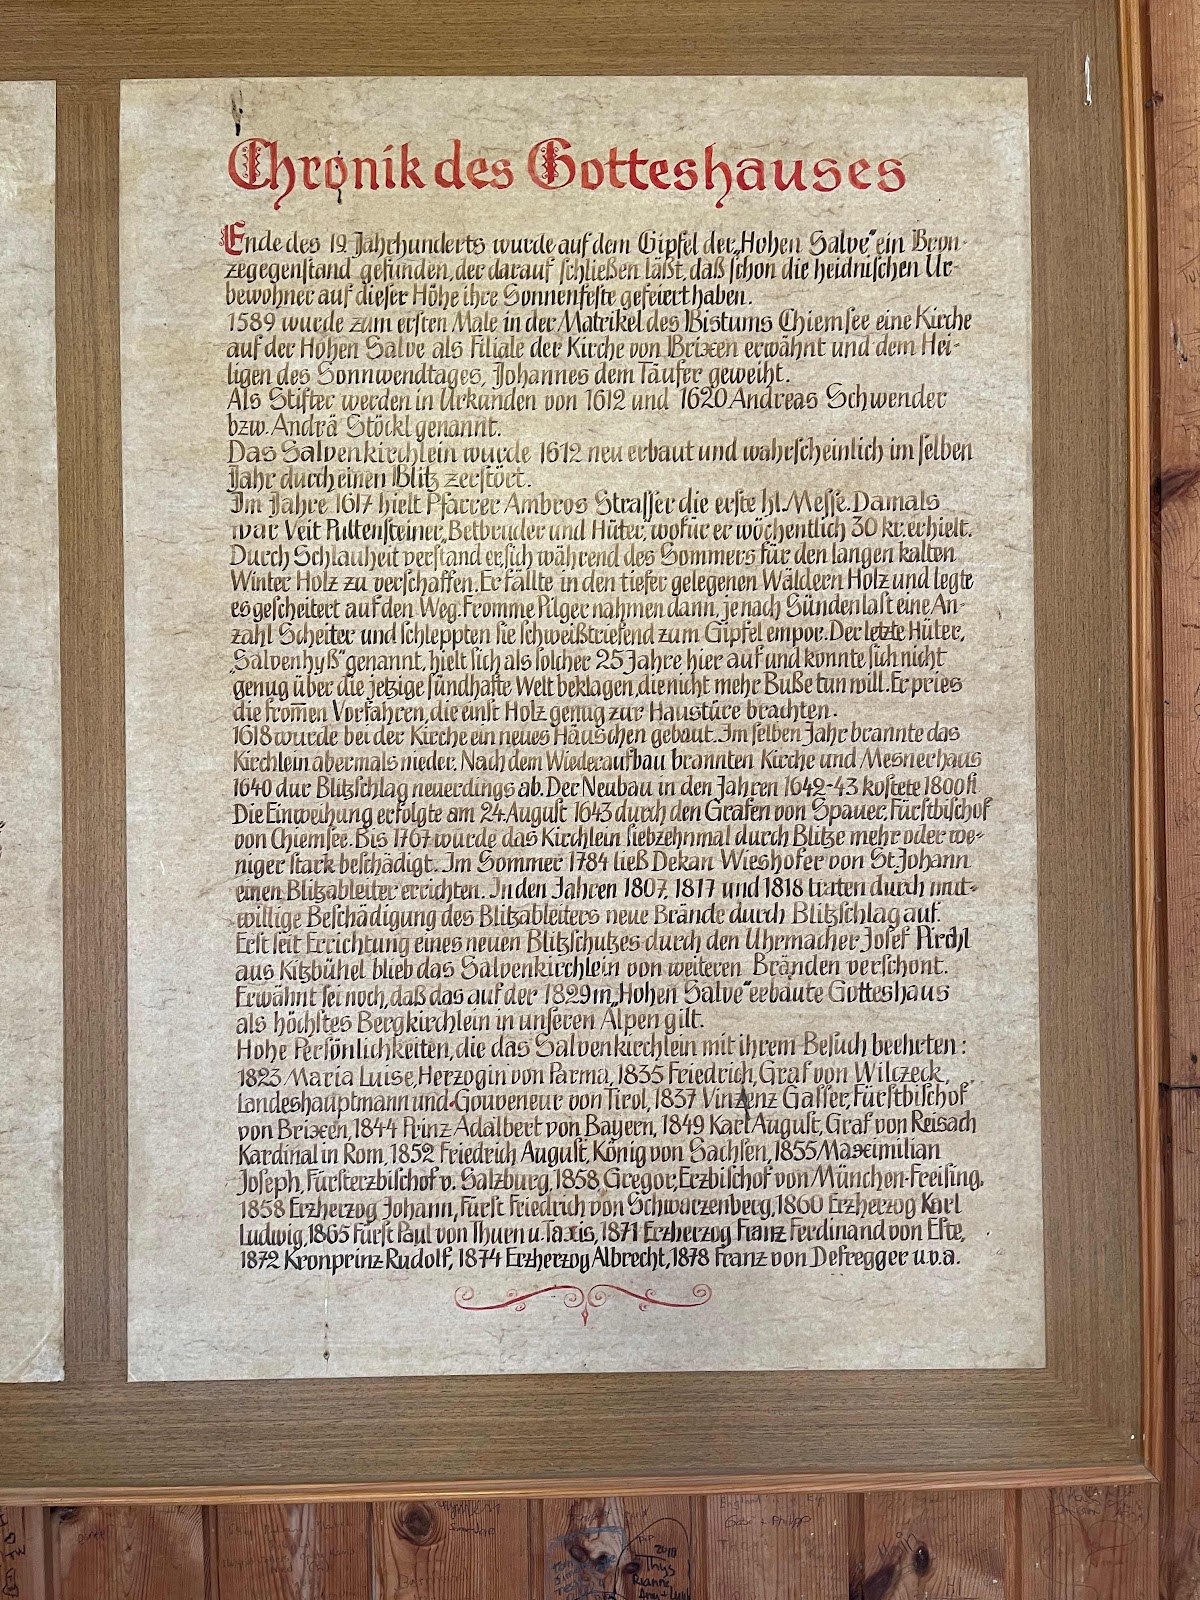 Chronik des Gotteshauses
Ende des 19. Jahrhunderts wurde auf dem Gipfel der „Hohen Salve" ein Bron-
zegegenstand gefunden, der darauf schließen läßt, daß schon die heidnischen Ur-
bewohner auf dieser Höhe ihre Sonnenfeste gefeiert haben.
1589 wurde zum ersten Male in der Matrikel des Bistums Chiemsee eine Kirche
auf der Hohen Salve als Filiale der Kirche von Brixen erwähnt und dem Hei-
ligen des Sonnwendtages, Johannes dem Täufer geweiht.
Als Stifter werden in Urkunden von 1612 und 1620 Andreas Schwender
bzw. Andrä Stöckl genannt.
Das Salvenkirchlein wurde 1612 neu erbaut und wahrscheinlich im selben
Jahr durch einen Blitz zerstört.
Im Jahre 1617 hielt Pfarrer Ambros Strasser die erste hl. Messe. Damals
war Veit Pultensteiner „Betbruder und Hüter", wofür er wöchentlich 30 kr. erhielt.
Durch Schlauheit verstand er, sich während des Sommers für den langen kalten
Winter Holz zu verschaffen. Er fällte in den tiefer gelegenen Wäldern Holz und legte
es gescheitert auf den Weg. Fromme Pilger nahmen dann, je nach Sündenlast eine An-
zahl Scheiter und schleppten sie schweißtriefend zum Gipfel empor. Der letzte Hüter,
„Salvenhyß" genannt, hielt sich als solcher 25 Jahre hier auf und konnte sich nicht
genug über die jetzige sündhafte Welt beklagen, die nicht mehr Buße tun will. Er pries
die from̅en Vorfahren, die einst Holz genug zur Haustüre brachten.
1618 wurde bei der Kirche ein neues Häuschen gebaut. Im selben Jahr brannte das
Kirchlein abermals nieder. Nach dem Wiederaufbau brannten Kirche und Mesnerhaus
1640 dur Blitzschlag neuerdings ab. Der Neubau in den Jahren 1642-43 kostete 1800 fl
Die Einweihung erfolgte am 24. August 1643 durch den Grafen von Spauer, Fürstbischof
von Chiemsee. Bis 1767 wurde das Kirchlein siebzehnmal durch Blitze mehr oder we-
niger stark beschädigt. Im Sommer 1784 ließ Dekan Wieshofer von St. Johann
einen Blitzableiter errichten. In den Jahren 1807, 1817 und 1818 traten durch mut-
willige Beschädigung des Blitzableiters neue Brände durch Blitzschlag auf.
Erst seit Errichtung eines neuen Blitzschutzes durch den Uhrmacher Josef Pirchl
aus Kitzbühel blieb das Salvenkirchlein von weiteren Bränden verschont.
Erwähnt sei noch, daß das auf der 1829 m „Hohen Salve" erbaute Gotteshaus
als höchstes Bergkirchlein in unseren Alpen gilt.
Hohe Persönlichkeiten, die das Salvenkirchlein mit ihrem Besuch beehrten:
1823 Maria Luise, Herzogin von Parma, 1835 Friedrich, Graf von Wilczeck,
Landeshauptmann und Gouveneur von Tirol, 1837 Vinzenz Gasser, Fürstbischof
von Brixen, 1844 Prinz Adalbert von Bayern, 1849 Karl August, Graf von Reisach
Kardinal in Rom, 1852 Friedrich August, König von Sachsen, 1855 Maximilian
Joseph, Fürsterzbischof v. Salzburg, 1858 Gregor, Erzbischof von München-Freising,
1858 Erzherzog Johann, Fürst Friedrich von Schwarzenberg, 1860 Erzherzog Karl
Ludwig, 1865 Fürst Paul von Thurn u. Taxis, 1871 Erzherzog Franz Ferdinand von Este,
1872 Kronprinz Rudolf, 1874 Erzherzog Albrecht, 1878 Franz von Defregger u.v.a.
England
Gabi + Philipp
2018
Thys
Rianne